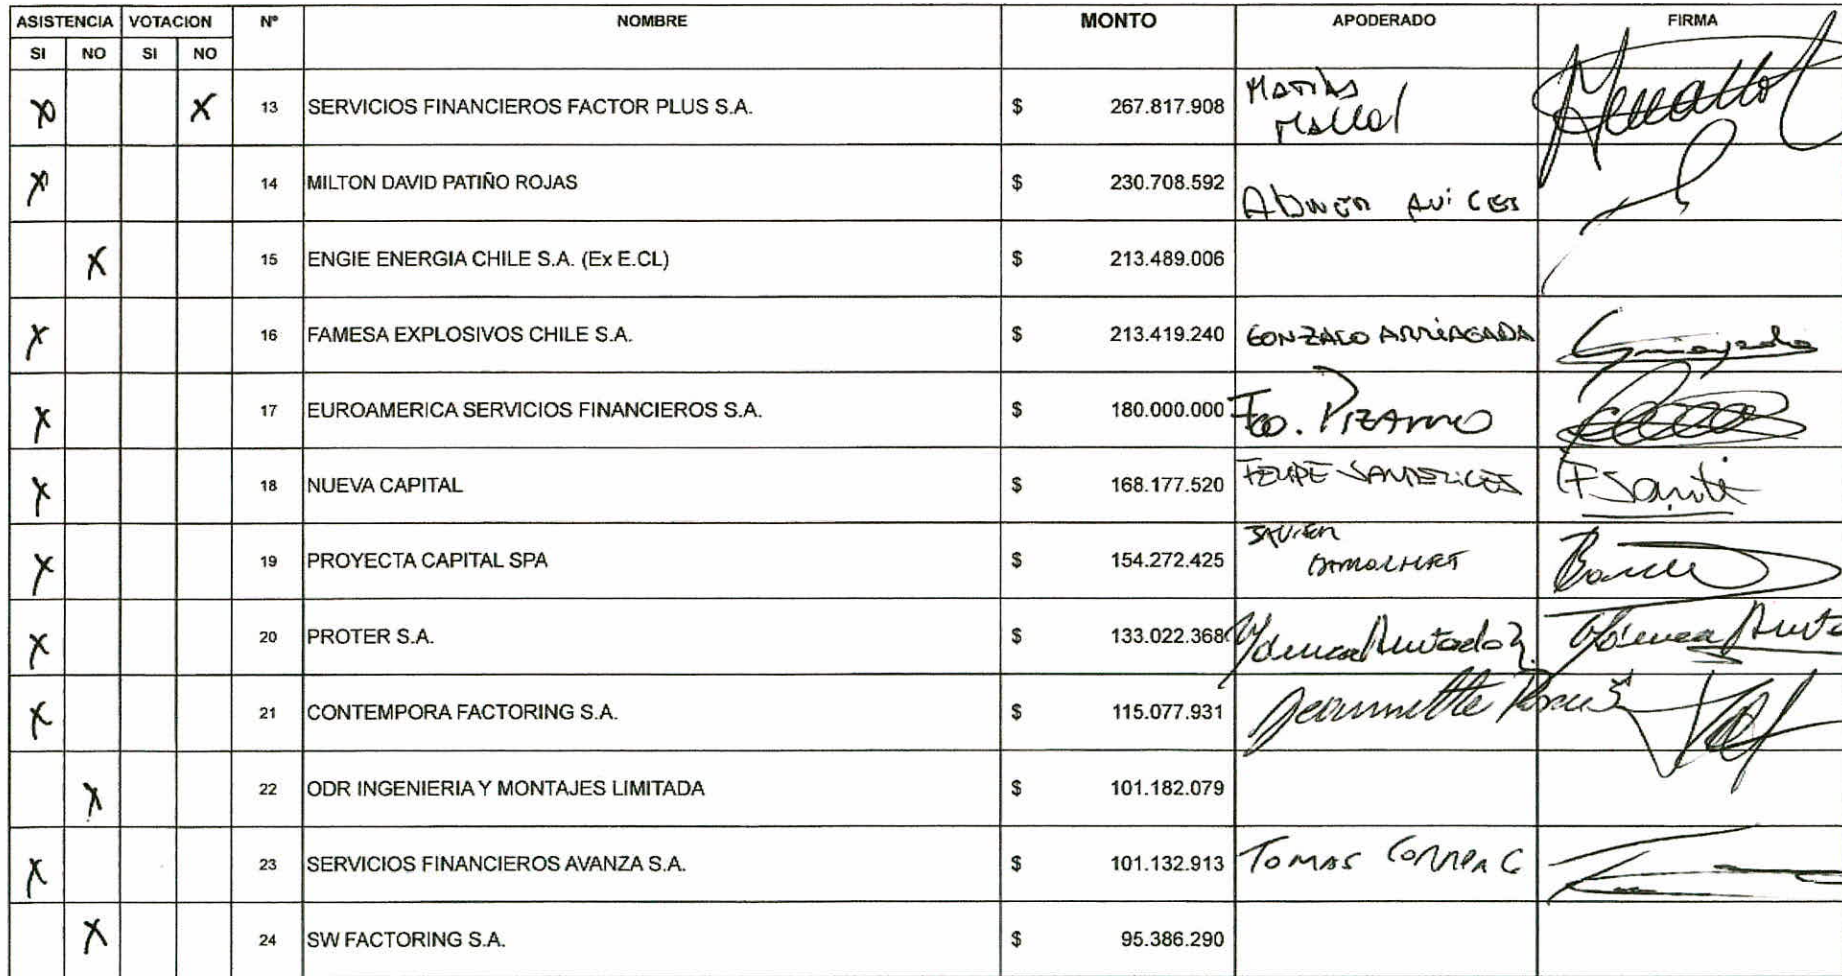 ASISTENCIA VOTACION Nº NOMBRE MONTO APODERADO FIRMA
SI NO SI NO
X X 13 SERVICIOS FINANCIEROS FACTOR PLUS S.A. $ 267.817.908 MATIAS
X 14 MILTON DAVID PATIÑO ROJAS $ 230.708.592
X 15 ENGIE ENERGIA CHILE S.A. (Ex E.CL) $ 213.489.006
X 16 FAMESA EXPLOSIVOS CHILE S.A. $ 213.419.240 GONZALO ARRIAGADA
X 17 EUROAMERICA SERVICIOS FINANCIEROS S.A. $ 180.000.000 Fco. PIZARRO
X 18 NUEVA CAPITAL $ 168.177.520 FELIPE
X 19 PROYECTA CAPITAL SPA $ 154.272.425 JAVIER
X 20 PROTER S.A. $ 133.022.368
X 21 CONTEMPORA FACTORING S.A. $ 115.077.931 Jeannette
X 22 ODR INGENIERIA Y MONTAJES LIMITADA $ 101.182.079
X 23 SERVICIOS FINANCIEROS AVANZA S.A. $ 101.132.913 TOMAS CORREA C
X 24 SW FACTORING S.A. $ 95.386.290